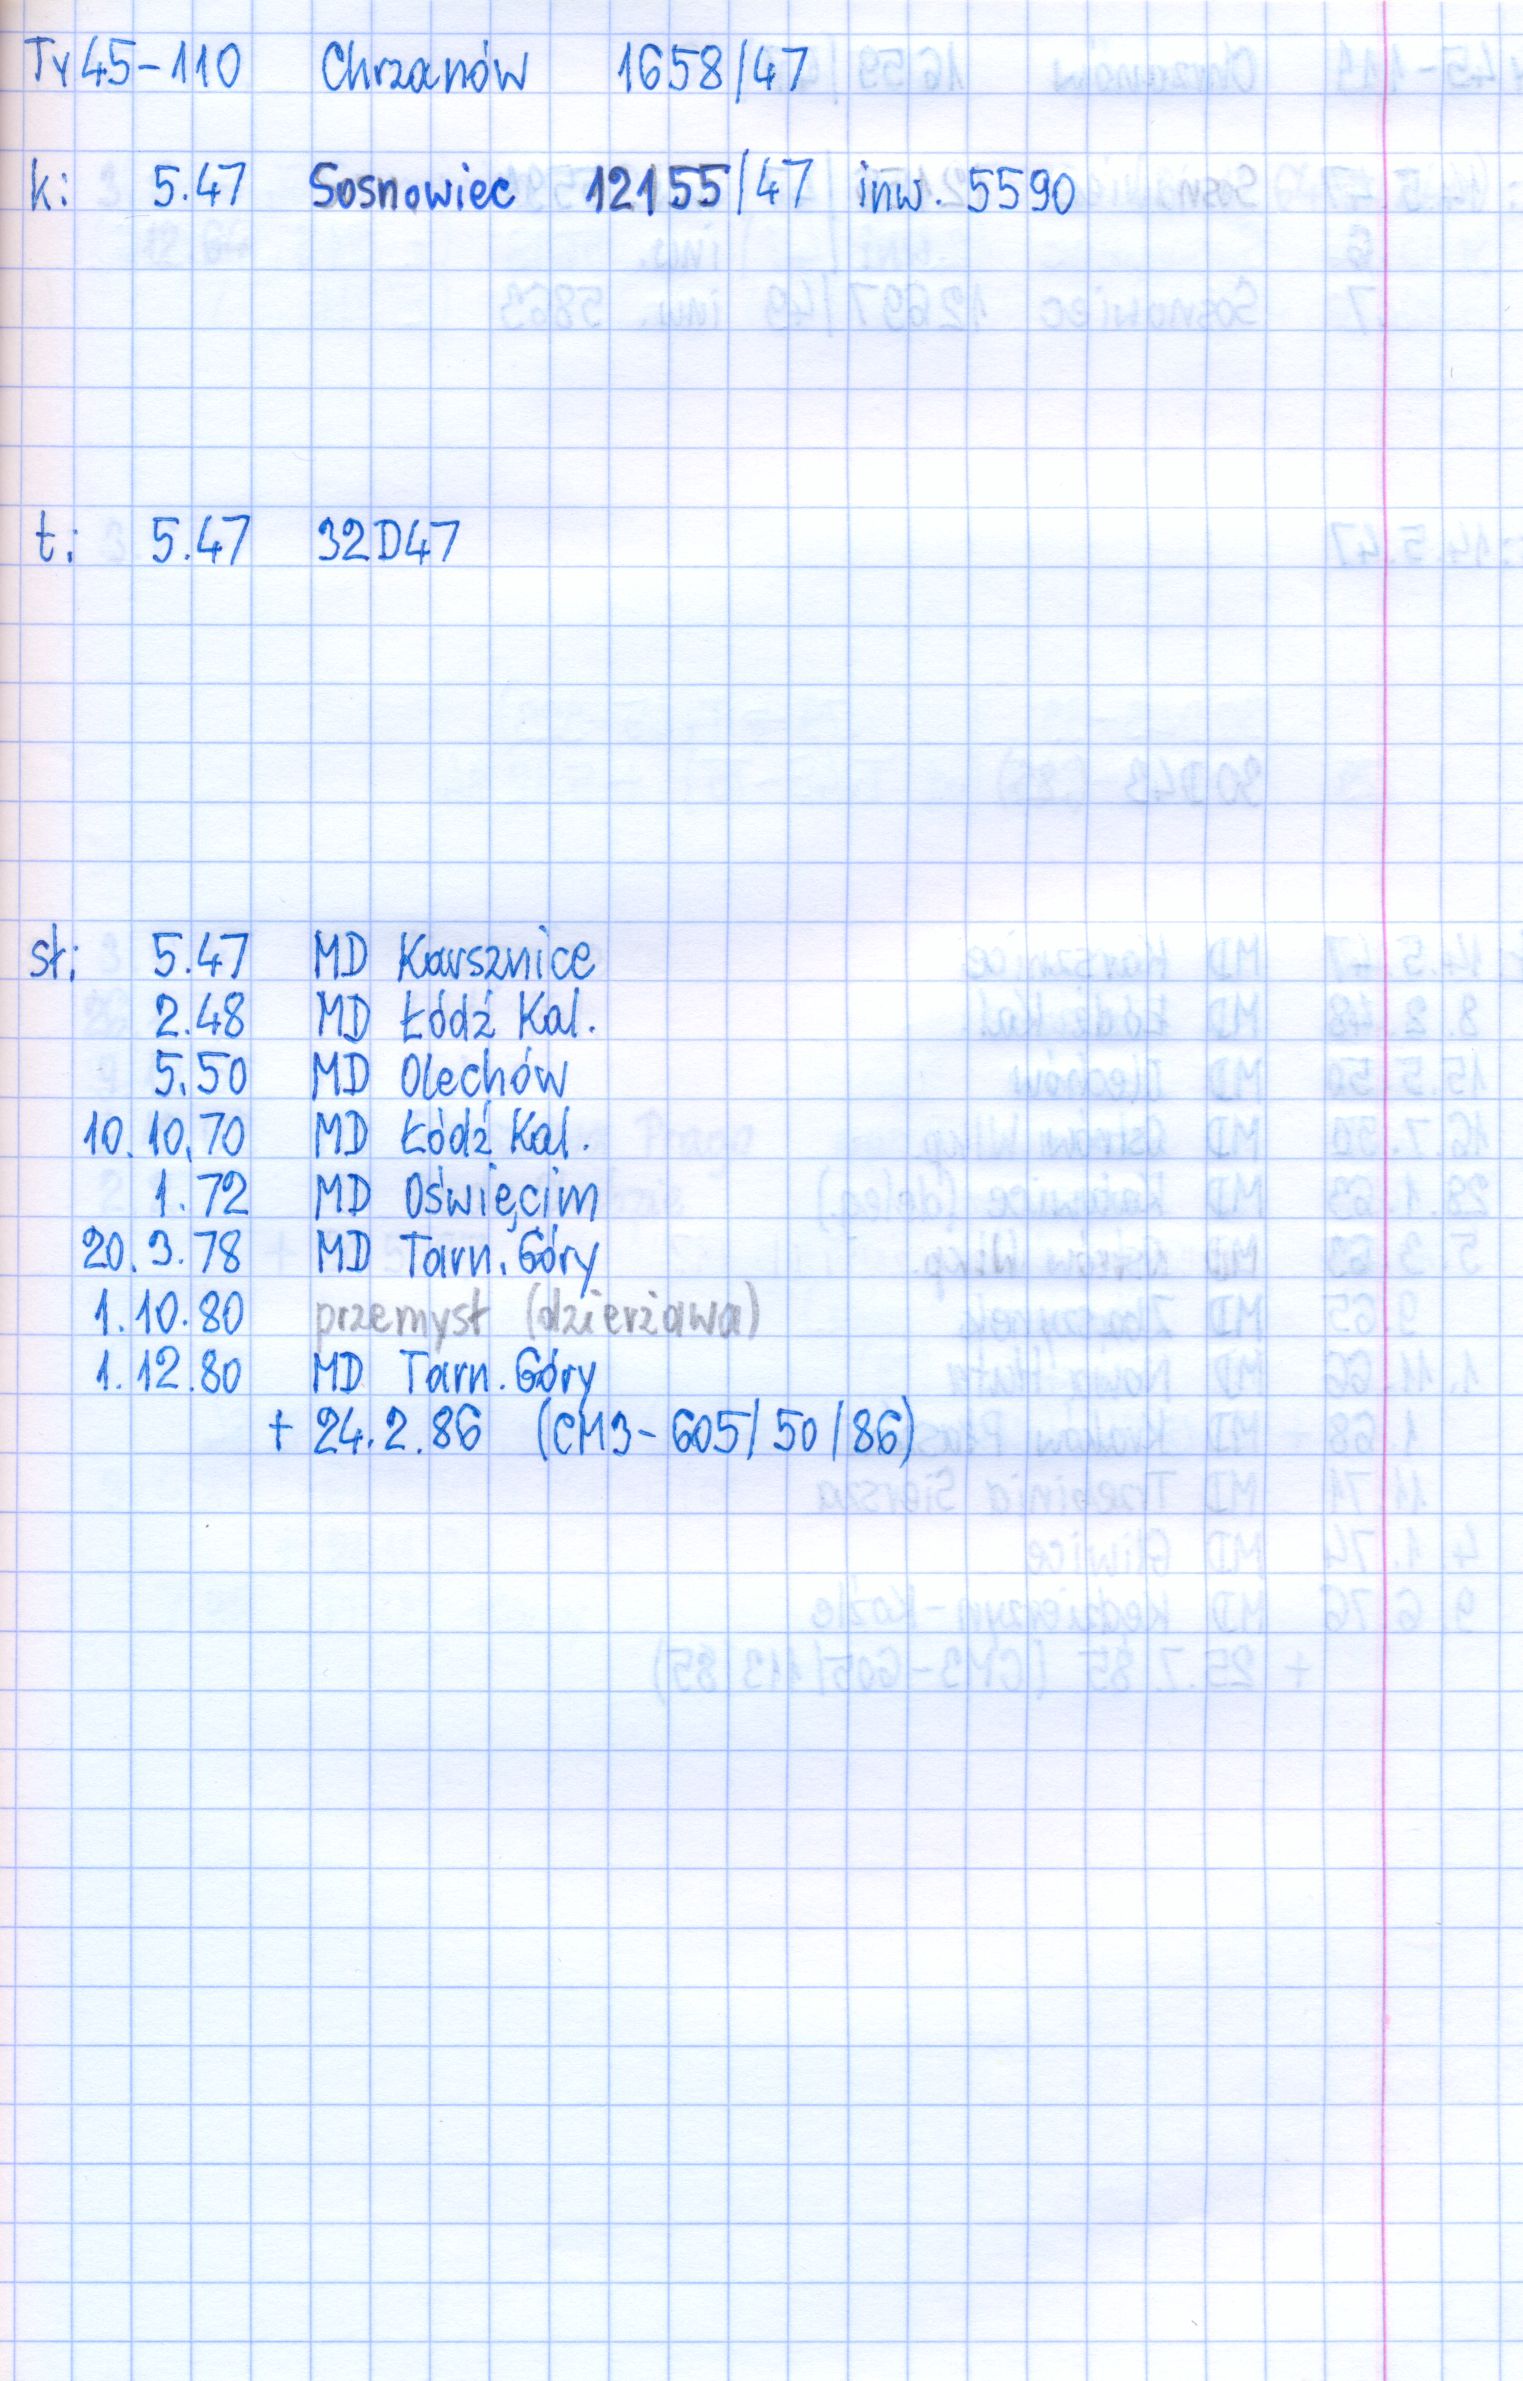 Ty45-110 Chrzanów 1658/47
k: 5.47 Sosnowiec 12155/47 inw. 5590
t: 5.47 32D47
sł: 5.47 MD Karsznice
2.48 MD Łódź Kal.
5.50 MD Olechów
10.10.70 MD Łódź Kal.
1.72 MD Oświęcim
20.3.78 MD Tarn. Góry
1.10.80 przemysł (dzierżawa)
1.12.80 MD Tarn. Góry
+ 24.2.86 (CM3-605/50/86)